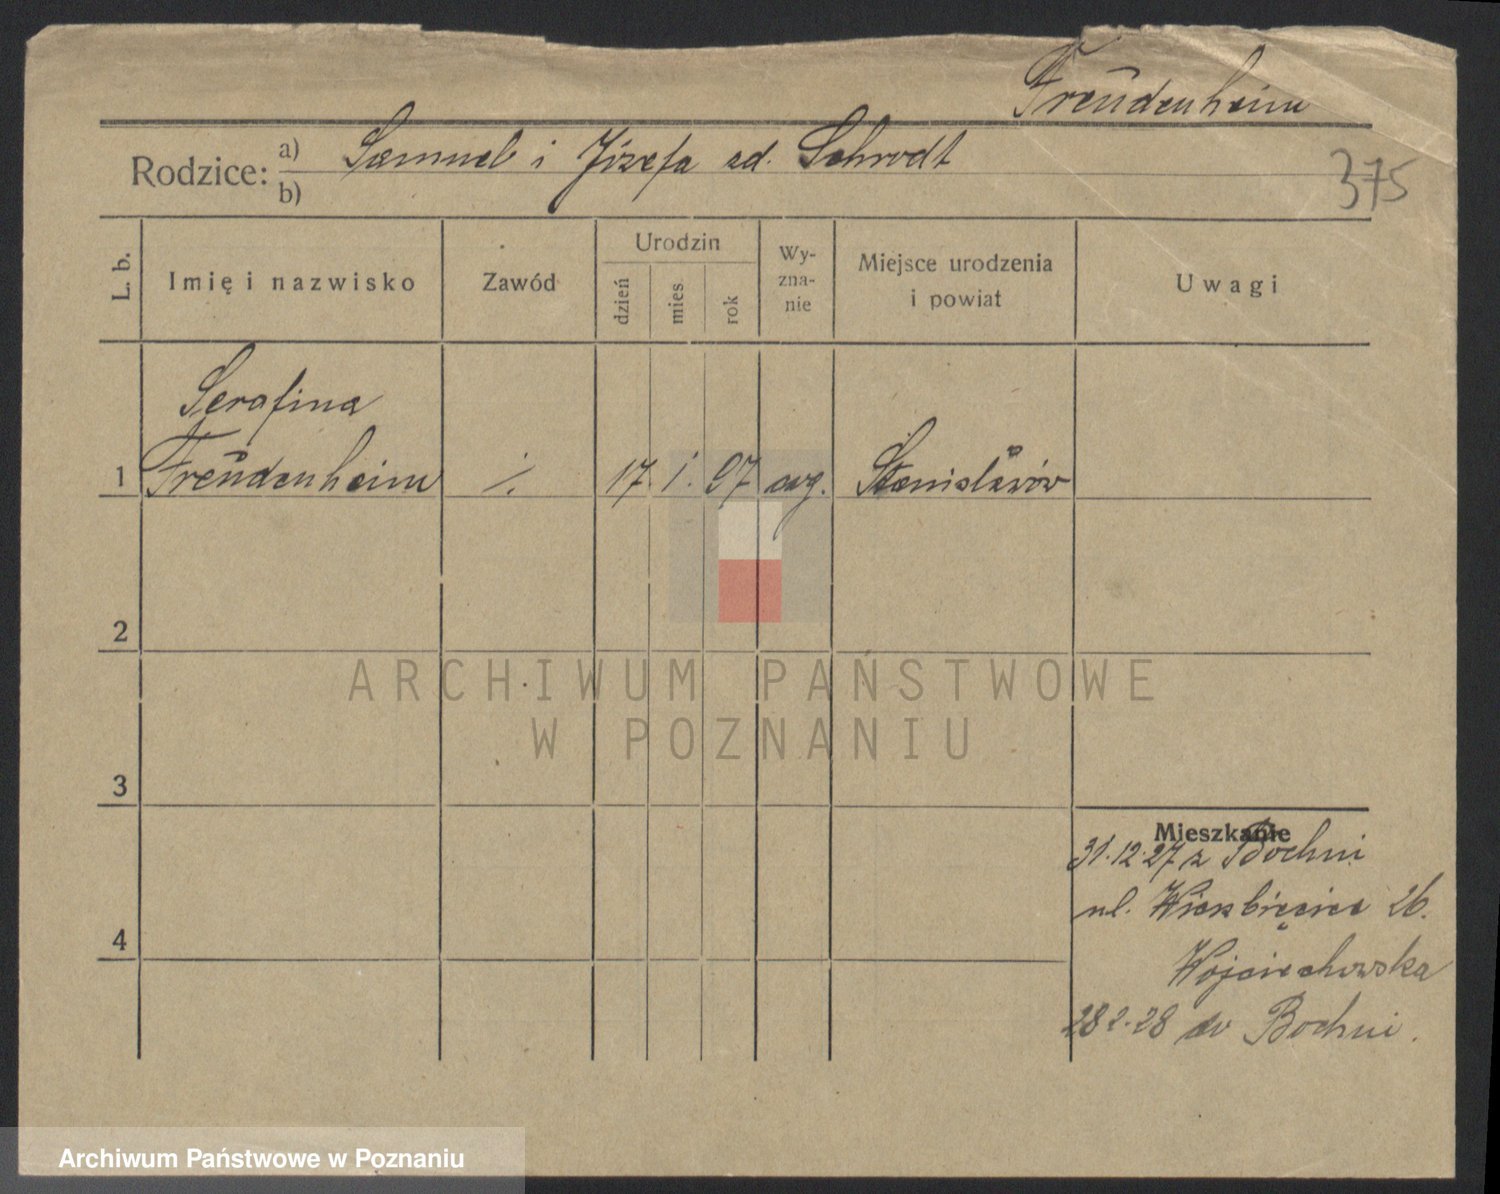 Freudenheim
Rodzice: a) Samuel i Józefa zd. Schrodt
b)
375
L. b. Imię i nazwisko Zawód Urodzin dzień mies. rok Wy-zna-nie Miejsce urodzenia i powiat Uwagi
Serafina
1 Freudenheim ./. 17. 1. 97 Stanisławów
2
3
4
Mieszkanie
31.12.27 z Bochni
ul. Wierzbięcice 26.
Wojciechowska
28 2.28 do Bochni.
ARCHIWUM PAŃSTWOWE
W POZNANIU
Archiwum Państwowe w Poznaniu